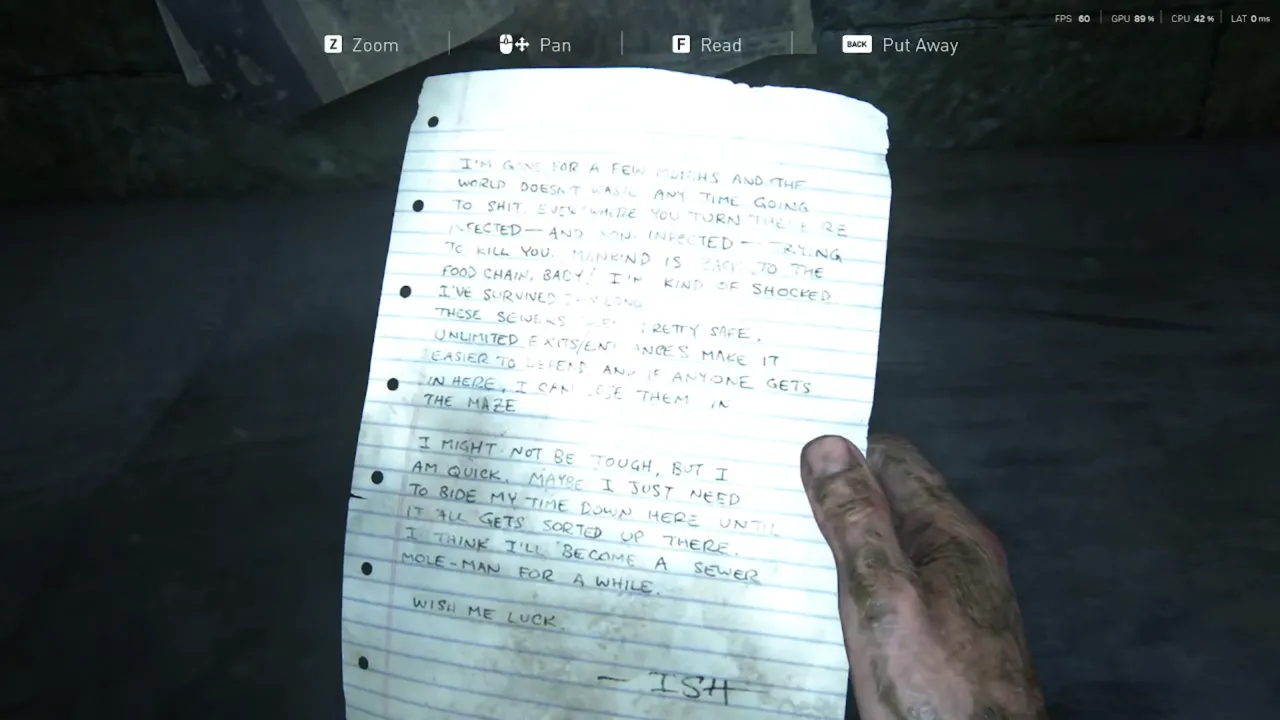 FPS 60 | GPU 89 % | CPU 42 % | LAT 0 ms
Z Zoom | Pan | F Read | BACK Put Away
I'M GONE FOR A FEW MONTHS AND THE
WORLD DOESN'T WASTE ANY TIME GOING
TO SHIT. EVERYWHERE YOU TURN THERE'RE
INFECTED — AND NON-INFECTED — TRYING
TO KILL YOU. MANKIND IS BACK TO THE
FOOD CHAIN, BABY! I'M KIND OF SHOCKED
I'VE SURVIVED THIS LONG
THESE SEWERS PRETTY SAFE.
UNLIMITED EXITS/ENTRANCES MAKE IT
EASIER TO DEFEND. AND IF ANYONE GETS
IN HERE, I CAN LOSE THEM IN
THE MAZE
I MIGHT NOT BE TOUGH, BUT I
AM QUICK. MAYBE I JUST NEED
TO BIDE MY TIME DOWN HERE UNTIL
IT ALL GETS SORTED UP THERE.
I THINK I'LL BECOME A SEWER
MOLE-MAN FOR A WHILE.
WISH ME LUCK.
— ISH